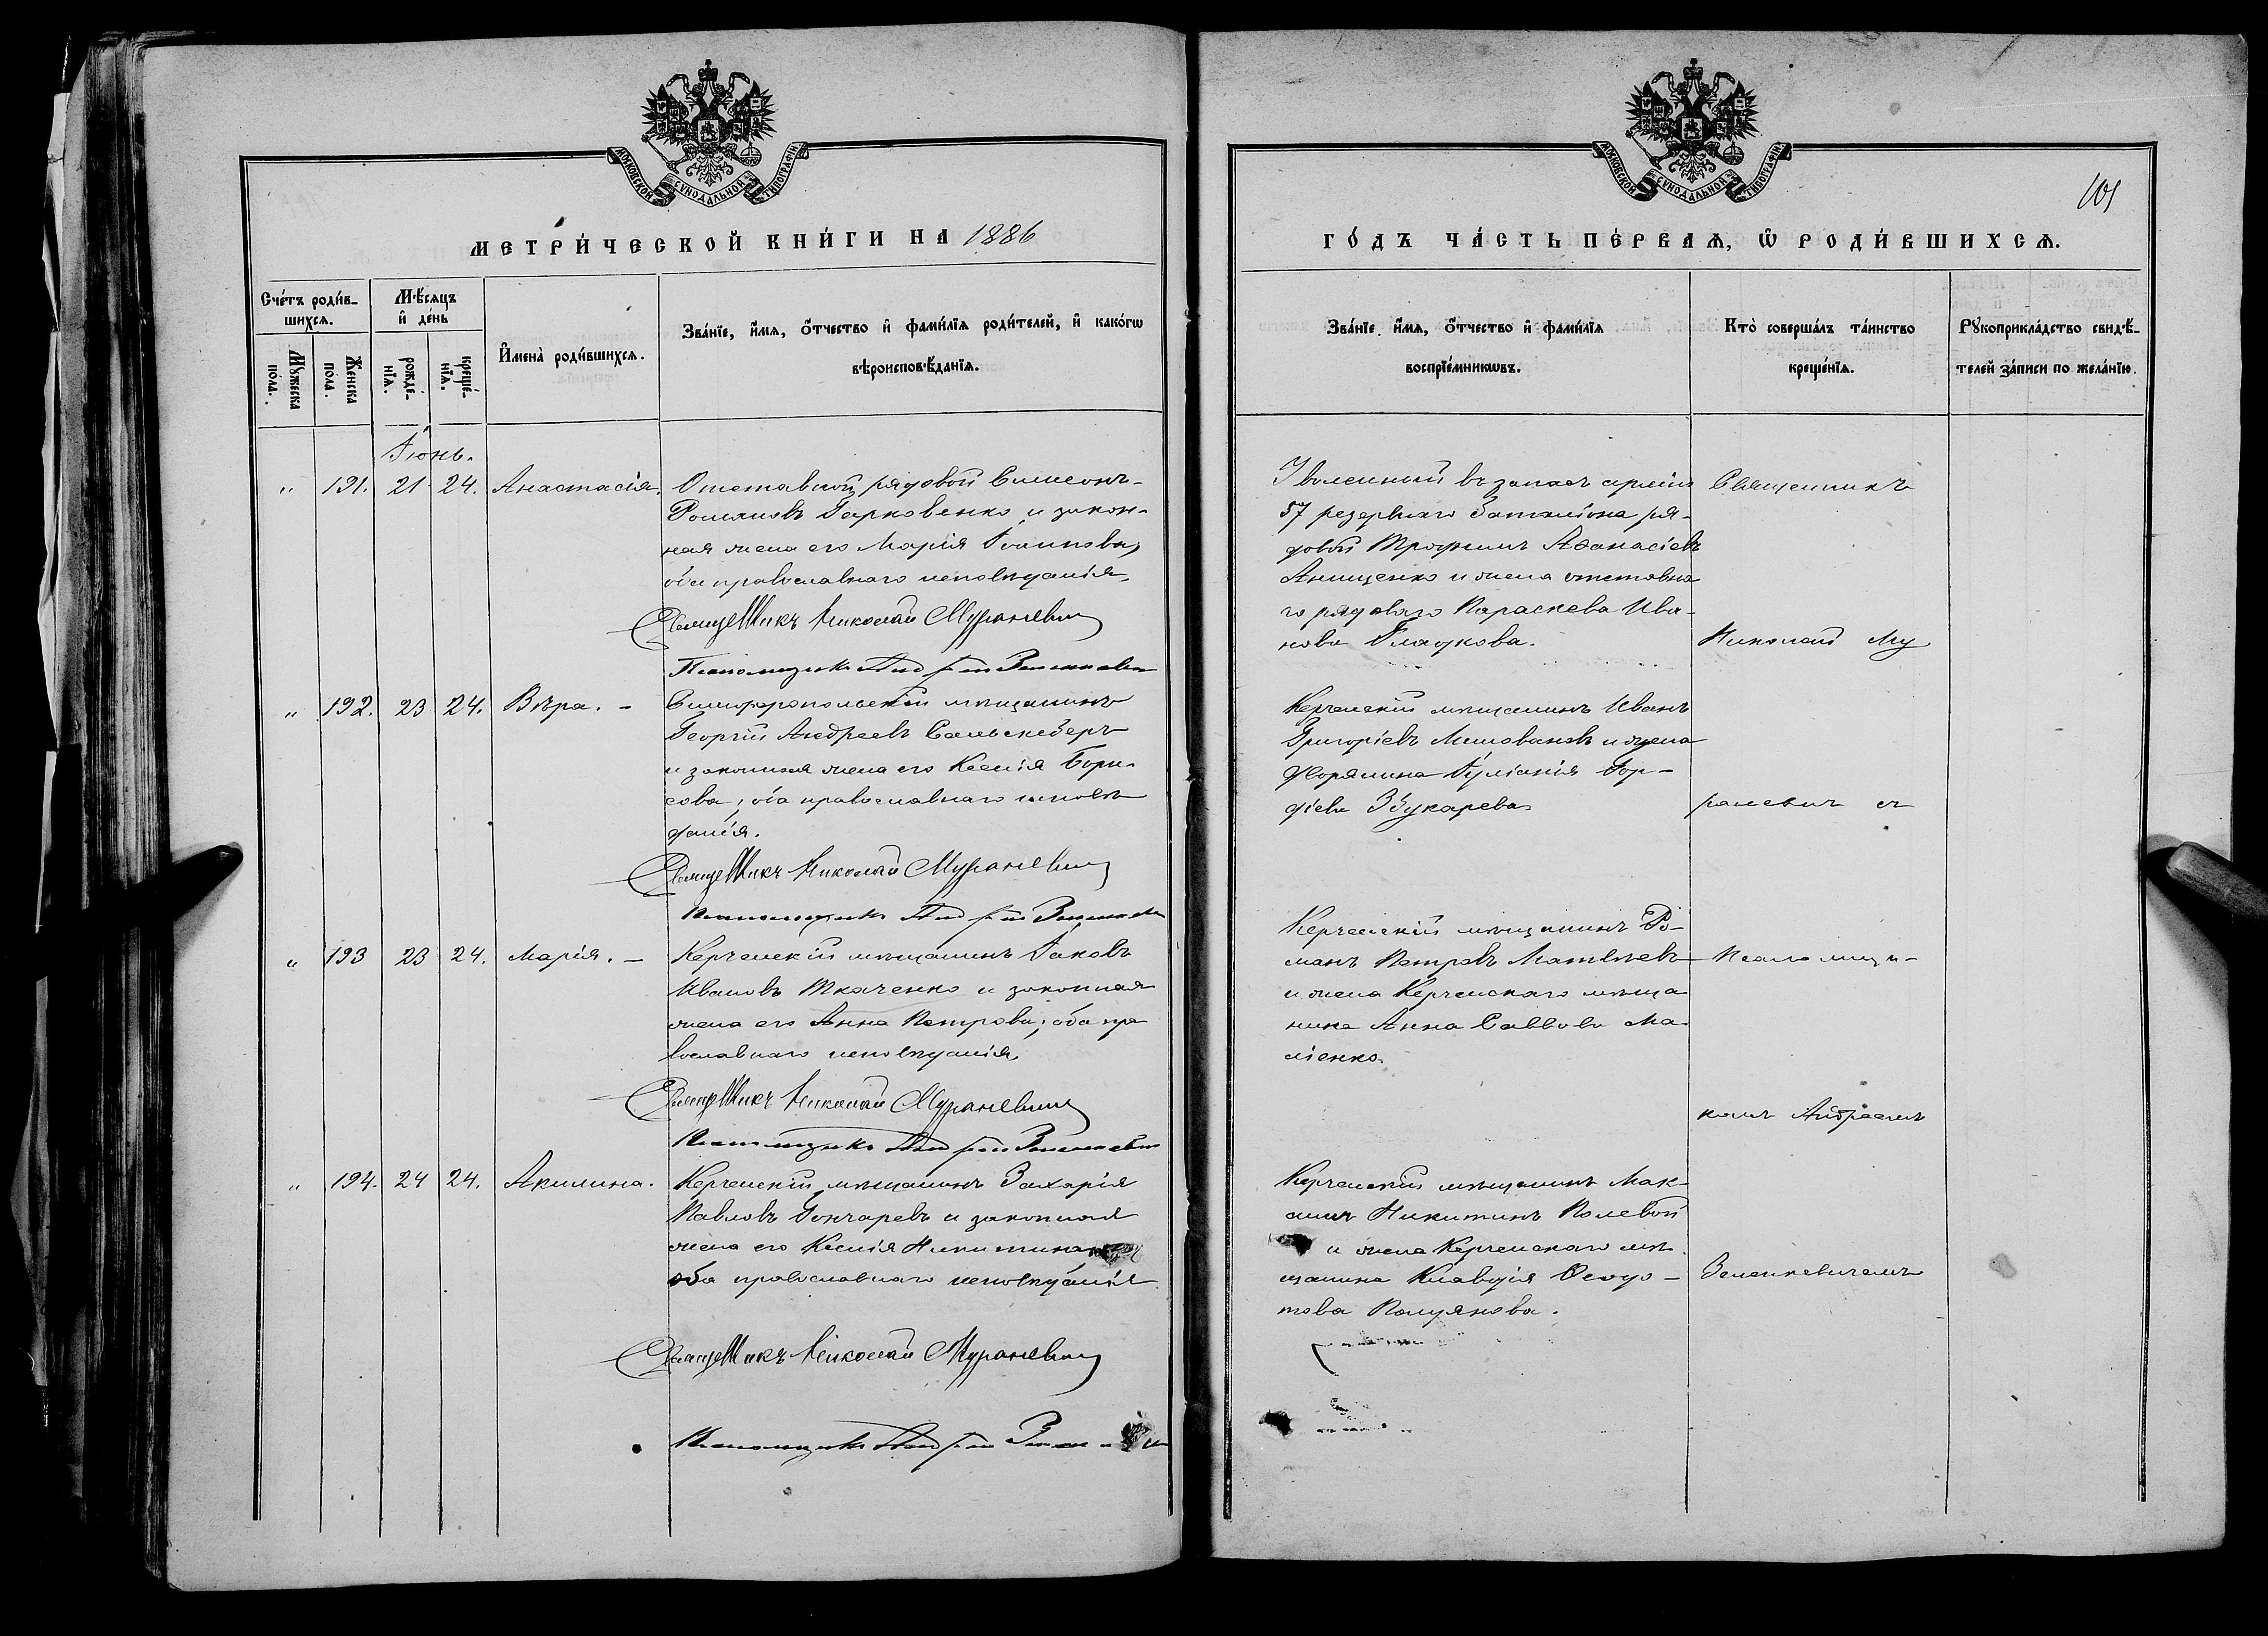 МОСКОВСКОЙ СѴНОДАЛЬНОЙ ТИПОГРАФІИ
МЕТРИ́ЧЕСКОЙ КНИ́ГИ НА 1886
Сче́тъ роди́в-
шихсѧ.
Мѣ́сѧцъ
и҆ де́нь
Мꙋ́жеска
по́ла.
Же́нска
по́ла.
рожде́-
нїѧ.
креще́-
нїѧ.
И҆мена̀ роди́вшихсѧ.
Зва́нїе, и҆́мѧ, ѻ҆́тчество и҆ фами́лїѧ роди́телей, и҆ како́гѡ
вѣроисповѣ́данїѧ.
Іюнь.
" 191. 21 24. Анастасія.
Отставной рядовой Симеонъ
Романовъ Гарковенко и закон-
ная жена его Марія Іоаннова,
оба православнаго исповѣданія.
Священникъ Николай Мураневич
Псаломщикъ Андрей Зенкевич
" 192. 23 24. Вѣра. –
Симферопольскій мѣщанинъ
Георгій Андреевъ
и законная жена его Ксенія Бори-
сова; оба православнаго исповѣ
данія.
Священникъ Николай Мураневич
Псаломщикъ Андрей
" 193 23 24. Марія. –
Керченскій мѣщанинъ Іаковъ
Ивановъ Ткаченко и законная
жена его Анна Петрова; оба пра
вославнаго исповѣданія
Священникъ Николай Мураневич
Псаломщикъ Андрей
" 194. 24 24. Акилина.
Керченскій мѣщанинъ Захарія
Павловъ Гончаревъ и законная
жена его Ксенія Никитина
оба православнаго исповѣданія
Священникъ Николай Мураневич
Псаломщикъ Андрей
МОСКОВСКОЙ СѴНОДАЛЬНОЙ ТИПОГРАФІИ
101
ГО́ДЪ ЧА́СТЬ ПЕ́РВАѦ, Ѡ҆ РОДИ́ВШИХСѦ.
Зва́нїе, и҆́мѧ, ѻ҆́тчество и҆ фами́лїѧ
воспрїе́мникѡвъ.
Кто̀ соверша́лъ та́инство
креще́нїѧ.
Рꙋкоприкла́дство свидѣ́-
телей за́писи по жела́нїю.
Уволенный въ запасъ арміи
57 резервнаго баталіона ря-
довой Трофимъ Аѳанасіевъ
Анищенко и жена отставна
го рядоваго Параскева Ива-
нова Гладкова.
Керченскій мѣщанинъ Иванъ
Григоріевъ и жена
дворянина Іуліанія Гор-
діева Збукарева
Керченскій мѣщанинъ Ро-
манъ Петровъ Матвѣевъ
и жена Керченскаго мѣща
нина Анна Саввова Ма-
сіенко.
Керченскій мѣщанинъ Мак-
симъ Никитинъ Полевой
и жена Керченскаго мѣ
щанина Клавдія Ѳеодо-
това
Священникъ
Николай Му
раневич съ
Псаломщи-
комъ Андреемъ
Зенкевичемъ